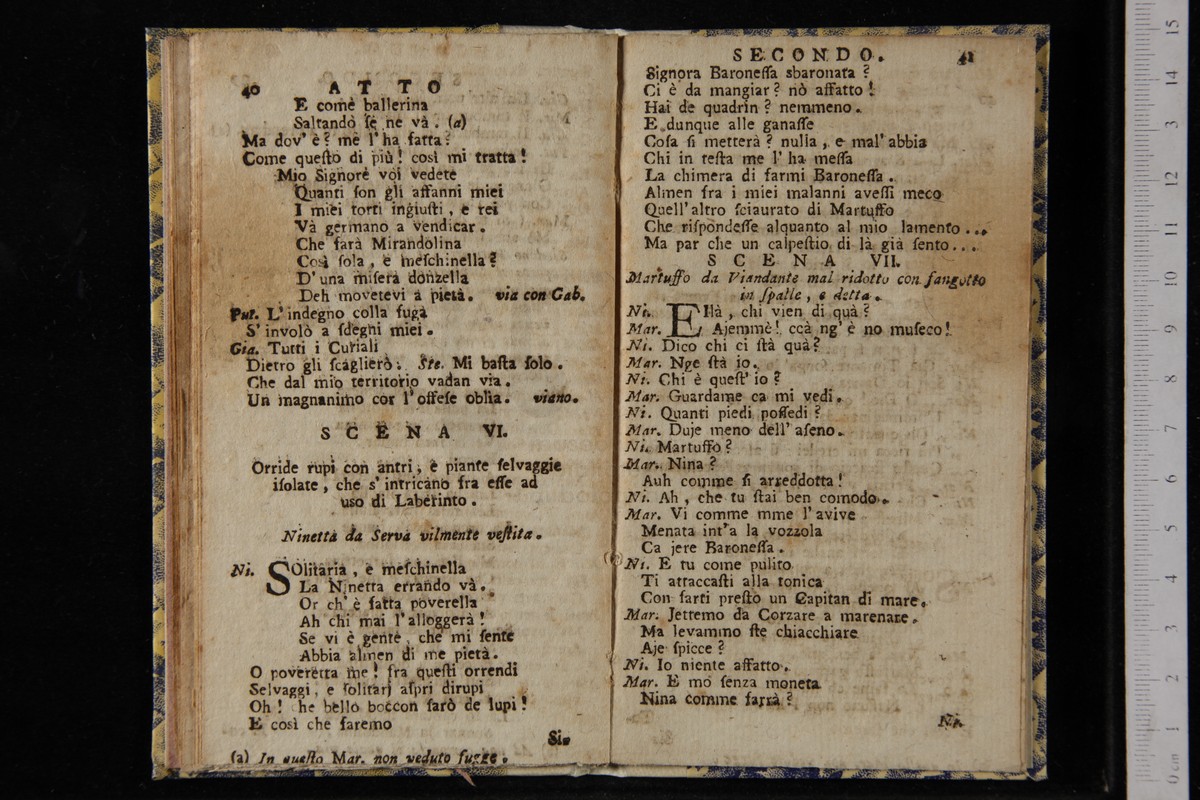 40 ATTO
E comè ballerina
Saltandò ſe ne và. (a)
Ma dov' è? me l' ha fatta?
Come queſto di più! così mi tratta!
Mio Signorè vòi vedete
Quanti ſon gli affanni miei
I mièi torti ingiuſti, e rei
Và germano a vendicar.
Che farà Mirandòlina
Così ſola, e meſchinella?
D' una miſera dònzella
Deh movetevi a pietà. via con Gab.
Put. L' indegno colla fuga
S' involò a ſdegni miei.
Gia. Tutti i Curiali
Dietro gli ſcaglierò: Ste. Mi baſta ſolo.
Che dal mio territorio vadan via.
Un magnanimo cor l' offeſe oblìa. viano.
SCENA VI.
Orride rupi con antri, e piante ſelvaggie
iſolate, che s' intricano fra eſſe ad
uso di Laberinto.
Ninetta da Serva vilmente veſtita.
Ni. SOlitaria, e meſchinella
La Ninetta errando và.
Or ch' è fatta poverella
Ah chi mai l' alloggerà!
Se vi è gente, che mi ſente
Abbia almen di me pietà.
O poveretta me! fra queſti orrendi
Selvaggi, e ſolitarj aſpri dirupi
Oh! che bèllo boccon farò de lupi!
E così che faremo
Si-
(a) In queſto Mar. non veduto fugge.
SECONDO. 41
Signora Baroneſſa sbaronata?
Ci è da mangiar? nò affatto!
Hai de quadrin? nemmeno.
E dunque alle ganaſſe
Coſa ſi metterà? nulla, e mal' abbia
Chi in teſta me l' ha meſſa
La chimera di farmi Baroneſſa.
Almen fra i miei malanni aveſſi meco
Quell' altro ſciaurato di Martuffo
Che riſpondeſſe alquanto al mio lamento...
Ma par che un calpeſtio di là già ſento...
SCENA VII.
Martuffo da Viandante mal ridotto con fangotto
in ſpalle, e detta.
Ni. EHà, chi vien di quà?
Mar. Ajemmè! ccà ng' è no muſeco!
Ni. Dico chi ci ſtà quà?
Mar. Nge ſtà io.
Ni. Chi è queſt' io?
Mar. Guardame ca mi vedi.
Ni. Quanti piedi poſſedi?
Mar. Duje meno dell' aſeno.
Ni. Martuffo?
Mar. Nina?
Auh comme ſi arreddotta!
Ni. Ah, che tu ſtai ben comodo.
Mar. Vi comme mme l' avive
Menata int' a la vozzola
Ca jere Baroneſſa.
Ni. E tu come pulito
Ti attaccaſti alla tonica
Con farti preſto un Capitan di mare.
Mar. Jettemo da Corzare a marenare.
Ma levammo ſte chiacchiare
Aje ſpicce?
Ni. Io niente affatto.
Mar. E mò ſenza moneta
Nina comme farrà?
Ni.
0 cm 1 2 3 4 5 6 7 8 9 10 11 12 13 14 15